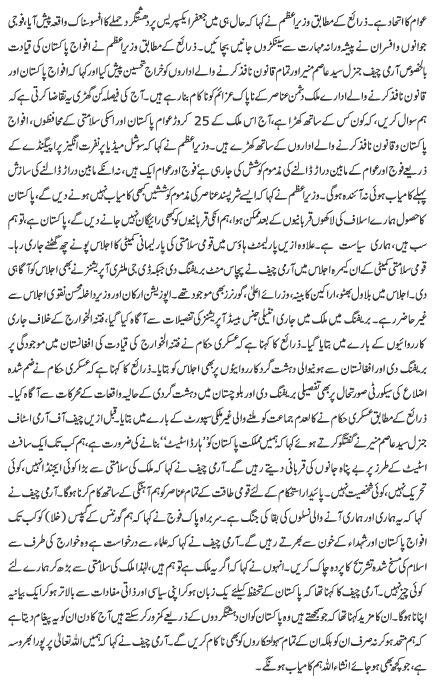 عوام کا اتحاد ہے۔ ذرائع کے مطابق وزیراعظم نے کہا کہ حال ہی میں جعفر ایکسپریس پر دہشتگرد حملے کا افسوسناک واقعہ پیش آیا، فوجی
جوانوں و افسران نے پیشہ ورانہ مہارت سے سینکڑوں جانیں بچائیں۔ ذرائع کے مطابق وزیراعظم نے افواج پاکستان کی قیادت
بالخصوص آرمی چیف جنرل سید عاصم منیر اور تمام قانون نافذ کرنے والے اداروں کو خراج تحسین پیش کیا اور کہا کہ افواج پاکستان اور
قانون نافذ کرنے والے ادارے ملک دشمن عناصر کے ناپاک عزائم کو ناکام بنا رہے ہیں۔ آج کی فیصلہ کن گھڑی یہ تقاضا کرتی ہے کہ
ہم سوال کریں، کہ کون کس کے ساتھ کھڑا ہے، آج اس ملک کے 25 کروڑ عوام پاکستان اور اسکی سلامتی کے محافظوں، افواج
پاکستان و قانون نافذ کرنے والے اداروں کے ساتھ کھڑے ہیں۔ وزیراعظم نے کہا کہ سوشل میڈیا پر نفرت انگیز پراپیگنڈے کے
ذریعے فوج اور عوام کے مابین دراڑ ڈالنے کی مذموم کوشش کی جا رہی ہے فوج اور عوام ایک ہیں، نہ انکے مابین دراڑ ڈالنے کی سازش
پہلے کامیاب ہوئی نہ آئندہ ہوگی۔ وزیراعظم نے کہا کہ ایسے شرپسند عناصر کی مذموم کوششیں کبھی کامیاب نہیں ہونے دیں گے، پاکستان
کا حصول ہمارے اسلاف کی لاکھوں قربانیوں کے بعد ممکن ہوا، ہم انکی قربانیوں کو کبھی رائیگاں نہیں جانے دیں گے، پاکستان ہے، تو ہم
سب ہیں، ہماری سیاست ہے۔ علاوہ ازیں پارلیمنٹ ہاؤس میں قومی سلامتی کی پارلیمانی کمیٹی کا اجلاس پونے چھ گھنٹے جاری رہا۔
قومی سلامتی کمیٹی کے ان کیمرہ اجلاس میں آرمی چیف نے پچاس منٹ بریفنگ دی جبکہ ڈی جی ملٹری آپریشنز نے بھی اجلاس کو آگاہی
دی۔ اجلاس میں بلاول بھٹو، اراکین کابینہ، وزرائے اعلیٰ، گورنرز بھی موجود تھے۔ اپوزیشن ارکان اور وزیر داخلہ محسن نقوی اجلاس سے
غیر حاضر رہے۔ بریفنگ میں ملک میں جاری انٹیلی جنس بیسڈ آپریشنز کی تفصیلات سے آگاہ کیا گیا، فتنہ الخوارج کے خلاف جاری
کارروائیوں کے بارے میں بتایا گیا۔ ذرائع کا کہنا ہے کہ عسکری حکام نے فتنہ الخوارج کی قیادت کی افغانستان میں موجودگی پر
بریفنگ دی اور افغانستان سے ہونے والی دہشت گرد کارروائیوں کو بتایا۔ ذرائع کے مطابق عسکری حکام نے ضم شدہ
اضلاع کی سیکورٹی صورتحال پر بھی تفصیلی بریفنگ دی اور بلوچستان میں دہشت گردی کے حالیہ واقعات کے محرکات سے آگاہ کیا۔
ذرائع کے مطابق عسکری حکام نے کالعدم جماعت کو ملنے والی غیر ملکی سپورٹ کے بارے میں بتایا۔ قبل ازیں چیف آف آرمی اسٹاف
جنرل سید عاصم منیر نے گفتگو کرتے ہوئے کہا کہ ہمیں مملکت پاکستان کو ''ہارڈ اسٹیٹ'' بنانے کی ضرورت ہے، ہم کب تک ایک سافٹ
اسٹیٹ کے طرز پر بے پناہ جانوں کی قربانی دیتے رہیں گے۔ آرمی چیف نے کہا کہ ملک کی سلامتی سے بڑا کوئی ایجنڈا نہیں، کوئی
تحریک نہیں، کوئی شخصیت نہیں۔ پائیدار استحکام کے لئے قومی طاقت کے تمام عناصر کو ہم آہنگی کے ساتھ کام کرنا ہوگا۔ آرمی چیف نے
کہا کہ یہ ہماری اور ہماری آنے والی نسلوں کی بقا کی جنگ ہے۔ سربراہ پاک فوج نے کہا کہ ہم گورننس کے گیپس (خلا) کو کب تک
افواج پاکستان اور شہداء کے خون سے بھرتے رہیں گے۔ آرمی چیف نے کہا کہ علماء سے درخواست ہے وہ خوارج کی طرف سے
اسلام کی مسخ شدہ تشریح کا پردہ چاک کریں۔ انہوں نے کہا کہ اگر یہ ملک ہے تو ہم ہیں، لہٰذا ملک کی سلامتی سے بڑھ کر ہمارے لئے
کوئی چیز نہیں۔ آرمی چیف کا کہنا تھا کہ پاکستان کے تحفظ کیلئے یک زبان ہو کر اپنی سیاسی اور ذاتی مفادات سے بالاتر ہو کر ایک بیانیہ
اپنانا ہوگا۔ ان کا مزید کہنا تھا کہ جو سمجھتے ہیں وہ پاکستان کو ان دہشتگردوں کے ذریعے کمزور کرسکتے ہیں آج کا دن ان کو یہ پیغام دیتا ہے
کہ ہم متحد ہو کر نہ صرف ان کو بلکہ ان کے تمام سہولتکاروں کو بھی ناکام کریں گے۔ آرمی چیف نے کہا کہ ہمیں اللہ تعالیٰ پر پورا بھروسہ
ہے، جو کچھ بھی ہو جائے انشاء اللہ ہم کامیاب ہونگے۔